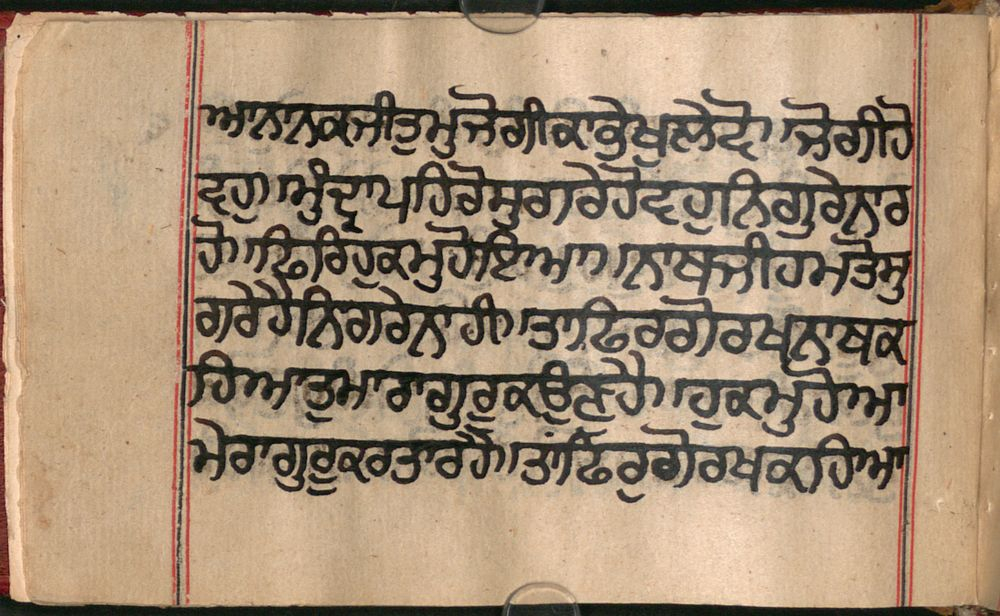 ਆਨਾਨਕਜੀਤੁਮੁਜੋਗੀਕਾਭੇਖੁਲੇਟੋ।ਜੋਗੀਹੋ
ਵਹੁ।ਮੁੰਦ੍ਰਾਪਹਿਰੋਸੁਗਰੇਹੋਵਹੁਨਿਗੁਰੇਨਾਰ
ਹੋ।ਫਿਰਿਹੁਕਮੁਹੋਇਆ।ਨਾਥਜੀਹਮਤੋਸੁ
ਗਰੇਹੈਨਿਗਰੇਨਾਹੀ।ਤਾਫਿਰਗੋਰਖਨਾਥਕ
ਹਿਆਤੁਮਾਰਾਗੁਰੁਕਉਣੁਹੈ।ਹੁਕਮੁਹੋਆ
ਮੇਰਾਗੁਰੁਕਰਤਾਰਹੈ।ਤਾਂਫਿਰੁਗੋਰਖਕਹਿਆ